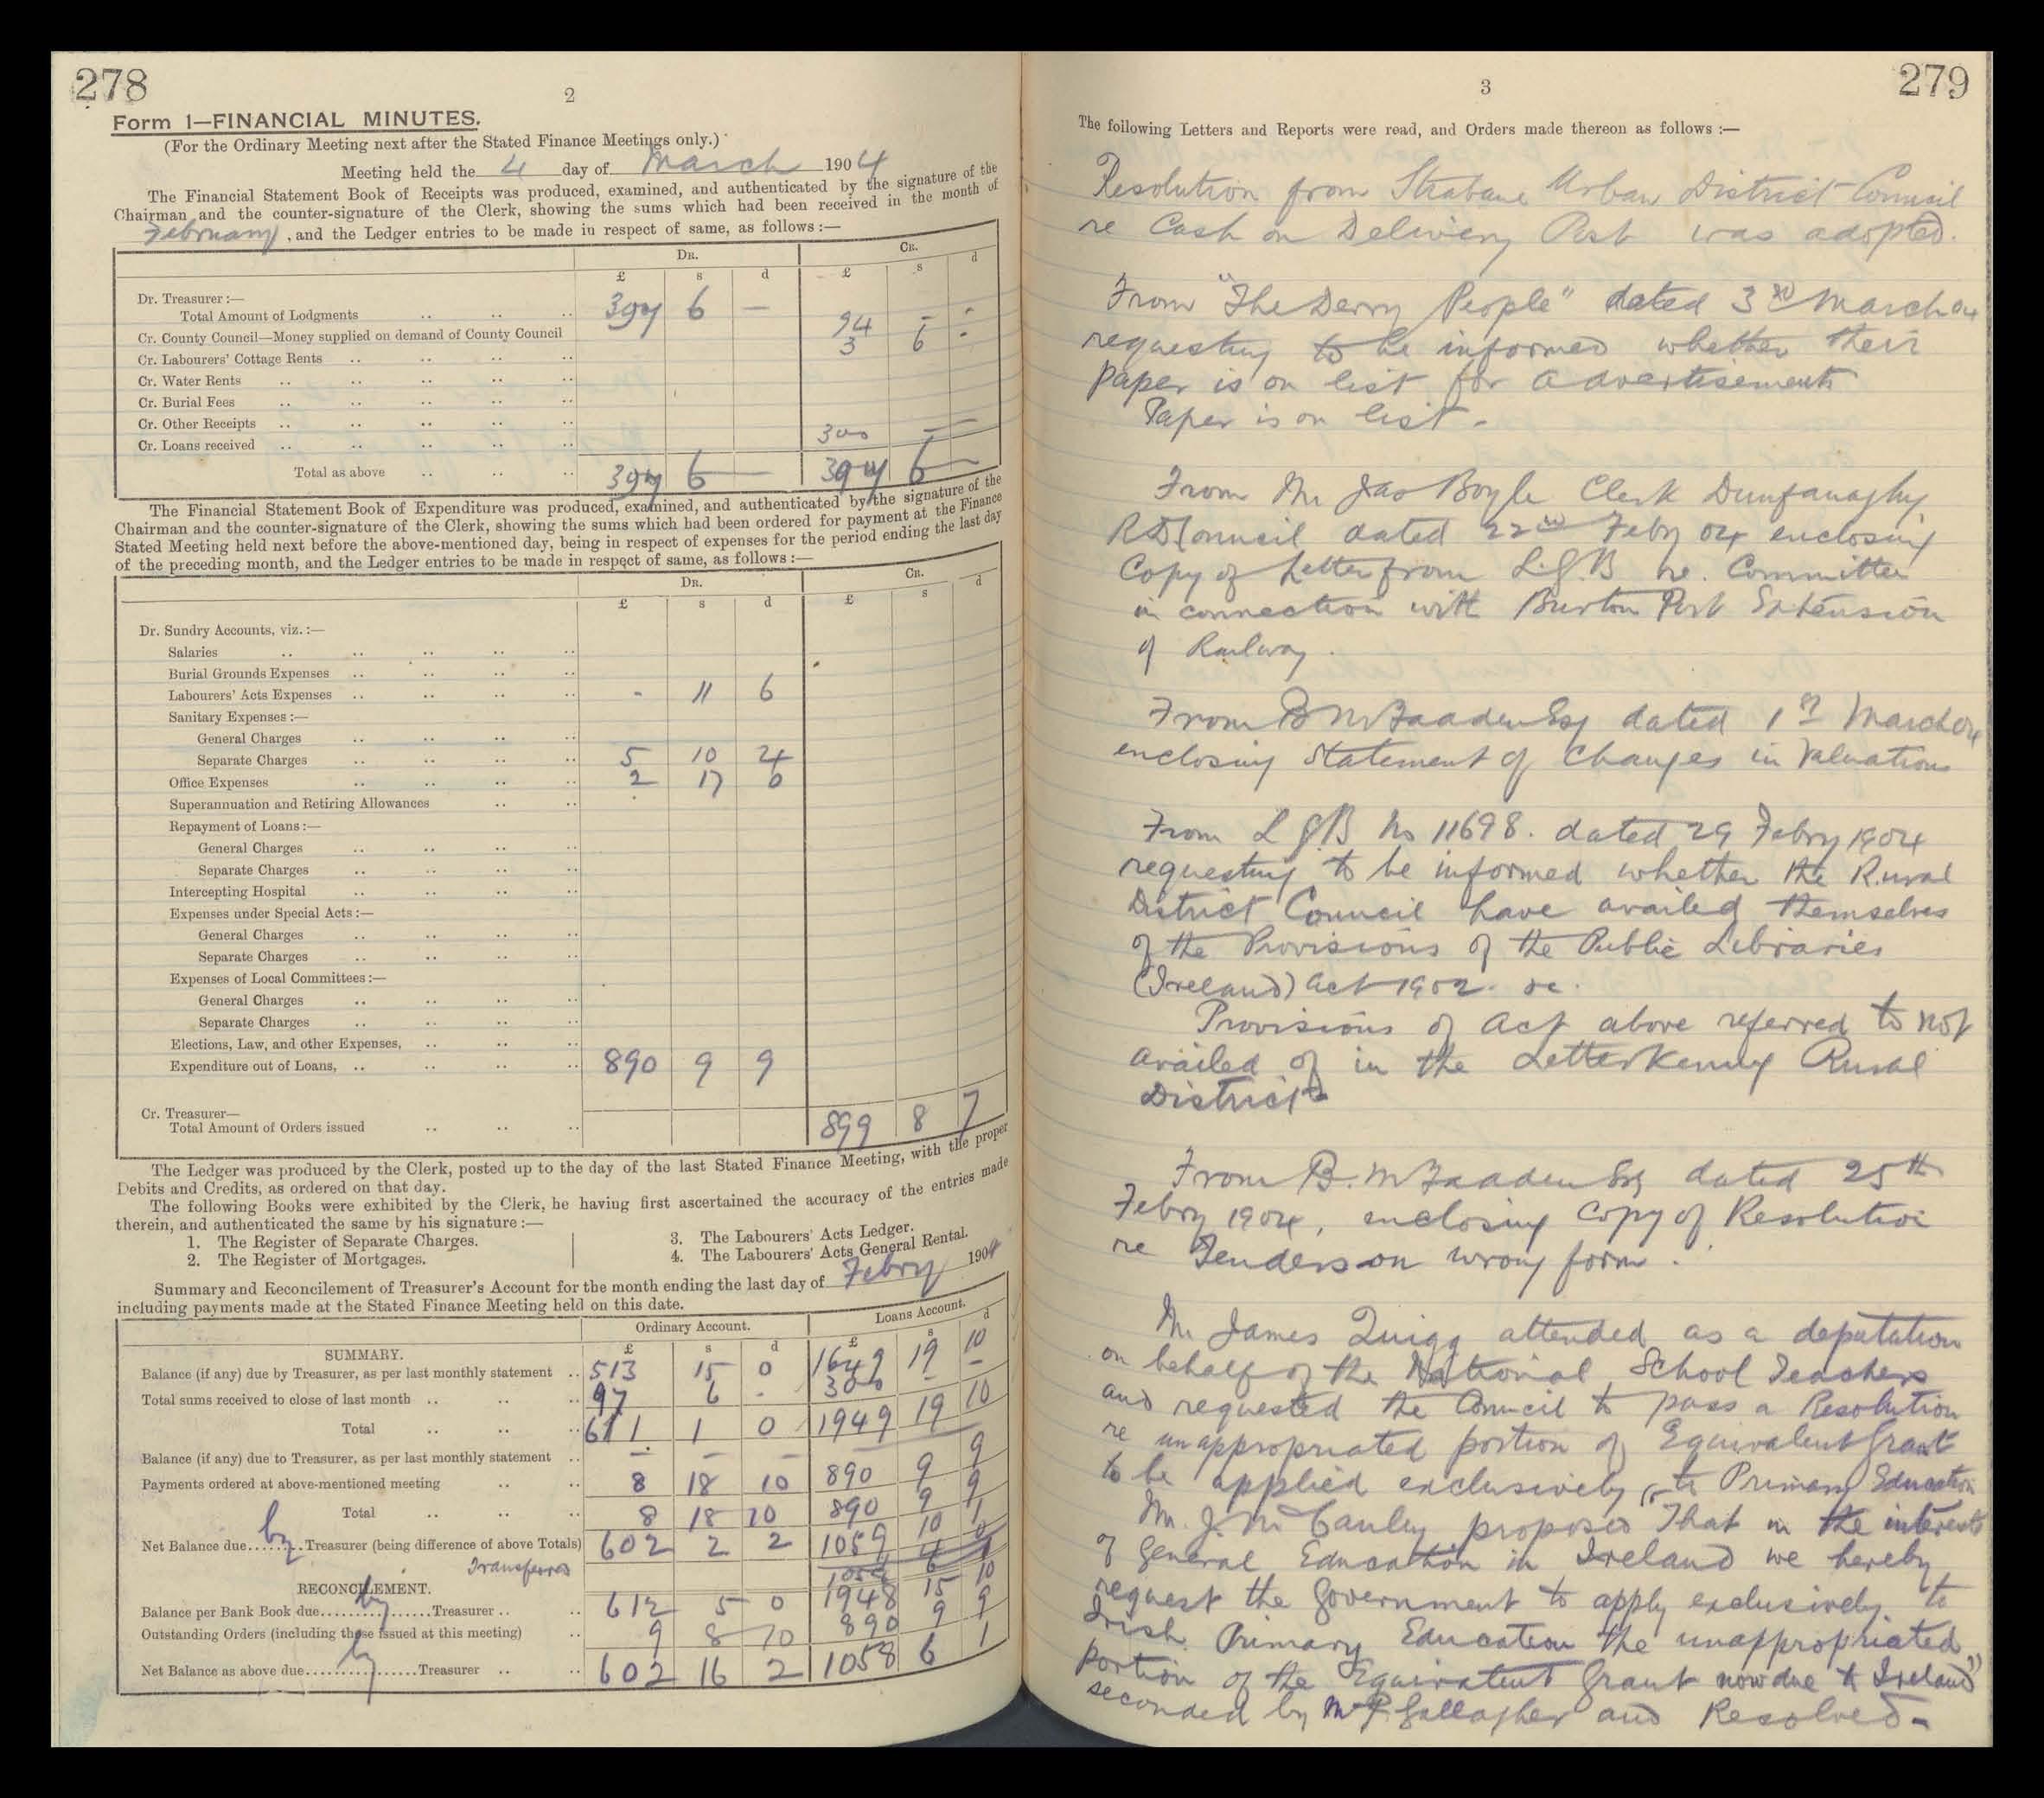 278
2
Form 1—FINANCIAL MINUTES.
(For the Ordinary Meeting next after the Stated Finance Meetings only.)
Meeting held the 4 day of March 1904
The Financial Statement Book of Receipts was produced, examined, and authenticated by the signature of the
Chairman and the counter-signature of the Clerk, showing the sums which had been received in the month of
February, and the Ledger entries to be made in respect of same, as follows :—
DR. CR.
£ s d £ s d
Dr. Treasurer :—
Total Amount of Lodgments 397 6 —
Cr. County Council—Money supplied on demand of County Council 94 - -
Cr. Labourers' Cottage Rents 3 6 -
Cr. Water Rents
Cr. Burial Fees
Cr. Other Receipts
Cr. Loans received 300 — —
Total as above 397 6 — 397 6 —
The Financial Statement Book of Expenditure was produced, examined, and authenticated by the signature of the
Chairman and the counter-signature of the Clerk, showing the sums which had been ordered for payment at the Finance
Stated Meeting held next before the above-mentioned day, being in respect of expenses for the period ending the last day
of the preceding month, and the Ledger entries to be made in respect of same, as follows :—
DR. CR.
£ s d £ s d
Dr. Sundry Accounts, viz. :—
Salaries
Burial Grounds Expenses
Labourers' Acts Expenses - 11 6
Sanitary Expenses :—
General Charges
Separate Charges 5 10 4
Office Expenses 2 17 0
Superannuation and Retiring Allowances
Repayment of Loans :—
General Charges
Separate Charges
Intercepting Hospital
Expenses under Special Acts :—
General Charges
Separate Charges
Expenses of Local Committees :—
General Charges
Separate Charges
Elections, Law, and other Expenses,
Expenditure out of Loans, 890 9 9
Cr. Treasurer—
Total Amount of Orders issued 899 8 7
The Ledger was produced by the Clerk, posted up to the day of the last Stated Finance Meeting, with the proper
Debits and Credits, as ordered on that day.
The following Books were exhibited by the Clerk, he having first ascertained the accuracy of the entries made
therein, and authenticated the same by his signature :—
1. The Register of Separate Charges. 3. The Labourers' Acts Ledger.
2. The Register of Mortgages. 4. The Labourers' Acts General Rental.
Summary and Reconcilement of Treasurer's Account for the month ending the last day of Febry 1904
including payments made at the Stated Finance Meeting held on this date.
Ordinary Account. Loans Account.
SUMMARY. £ s d £ s d
Balance (if any) due by Treasurer, as per last monthly statement 513 15 0 1649 19 10
Total sums received to close of last month 97 6 - 300 - -
Total 611 1 0 1949 19 10
Balance (if any) due to Treasurer, as per last monthly statement — — —
Payments ordered at above-mentioned meeting 8 18 10 890 9 9
Total 8 18 10 890 9 9
Net Balance due by Treasurer (being difference of above Totals) 602 2 2 1059 10 1
Transferred
RECONCILEMENT.
Balance per Bank Book due by Treasurer 612 5 0 1948 15 10
Outstanding Orders (including those issued at this meeting) 9 8 10 890 9 9
Net Balance as above due by Treasurer 602 16 2 1058 6 1
279
3
The following Letters and Reports were read, and Orders made thereon as follows :—
Resolution from Strabane Urban District Council
re Cash on Delivery Post was adopted.
From "The Derry People" dated 3rd March 04
requesting to be informed whether their
paper is on list for advertisements
Paper is on list -
From Mr Jas Boyle Clerk Dunfanaghy
RDCouncil dated 22nd Feby 04 enclosing
Copy of Letter from L.G.B re. Committee
in connection with Burton Port Extension
of Railway.
From B McFadden Esq dated 1st March 04
enclosing Statement of Changes in Valuations
From L.G.B No 11698. dated 29 Febry 1904
requesting to be informed whether the Rural
District Council have availed themselves
of the Provisions of the Public Libraries
(Ireland) Act 1902. &c.
Provisions of Act above referred to not
availed of in the Letterkenny Rural
District
From B. McFadden Esq dated 25th
Febry 1904, enclosing Copy of Resolution
re Tenders on wrong form.
Mr James Quigg attended as a deputation
on behalf of the National School Teachers
and requested the Council to pass a Resolution
re unappropriated portion of Equivalent Grant
to be applied exclusively to Primary Education
Mr. J. McCauley proposed "That in the interests
of General Education in Ireland we hereby
request the Government to apply exclusively to
Irish Primary Education the unappropriated
portion of the Equivalent Grant now due to Ireland"
seconded by Mr P. Gallagher and Resolved -